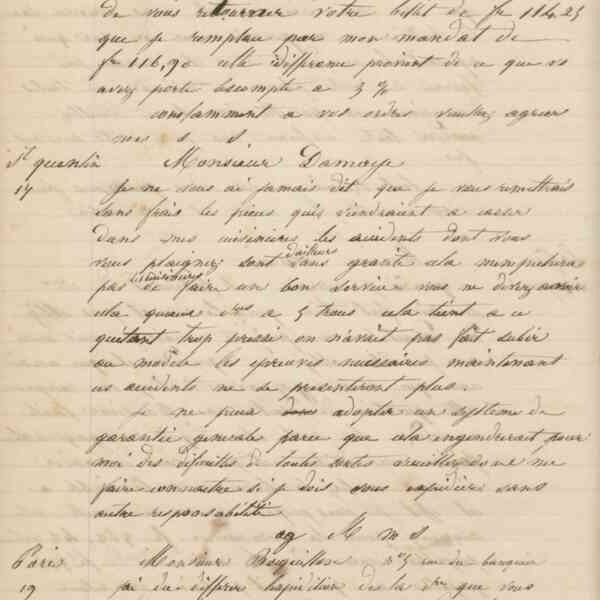 de vous retourner votre billet de fr 184,25
que je remplace par mon mandat de
fr 116,90 cette différence provient de ce que vs
avez porté escompte à 3 %
constamment a vos ordres veuillez agréer
mes s s
St quentin Monsieur Damaye
17 Je ne vous ai jamais dit que je vous remettrais
sans frais les pièces quis viendraient a casser
dans mes cuisinières les accidents dont vous
vous plaignez sont d'ailleurs sans gravité cela n'empechera
pas les cuisinieres de faire un bon service vous ne devez avoir
cela qu'aux à 5 trous cela tient a ce
qu'étant trop pressé on n'avait pas fait subir
au modèle les épreuves nécessaires maintenant
ces accidents ne se présenteront plus.
Je ne puis adopter un système de
garantie générale parce que cela engendrerait pour
moi des dificultés de toutes sortes veuillez donc me
faire connaitre si je dois vous expédier sans
autre responsabilité
ag M m s
Paris Monsieur Bouquillon rue du banquier
19 j'ai du différer l'expédition de la que vous